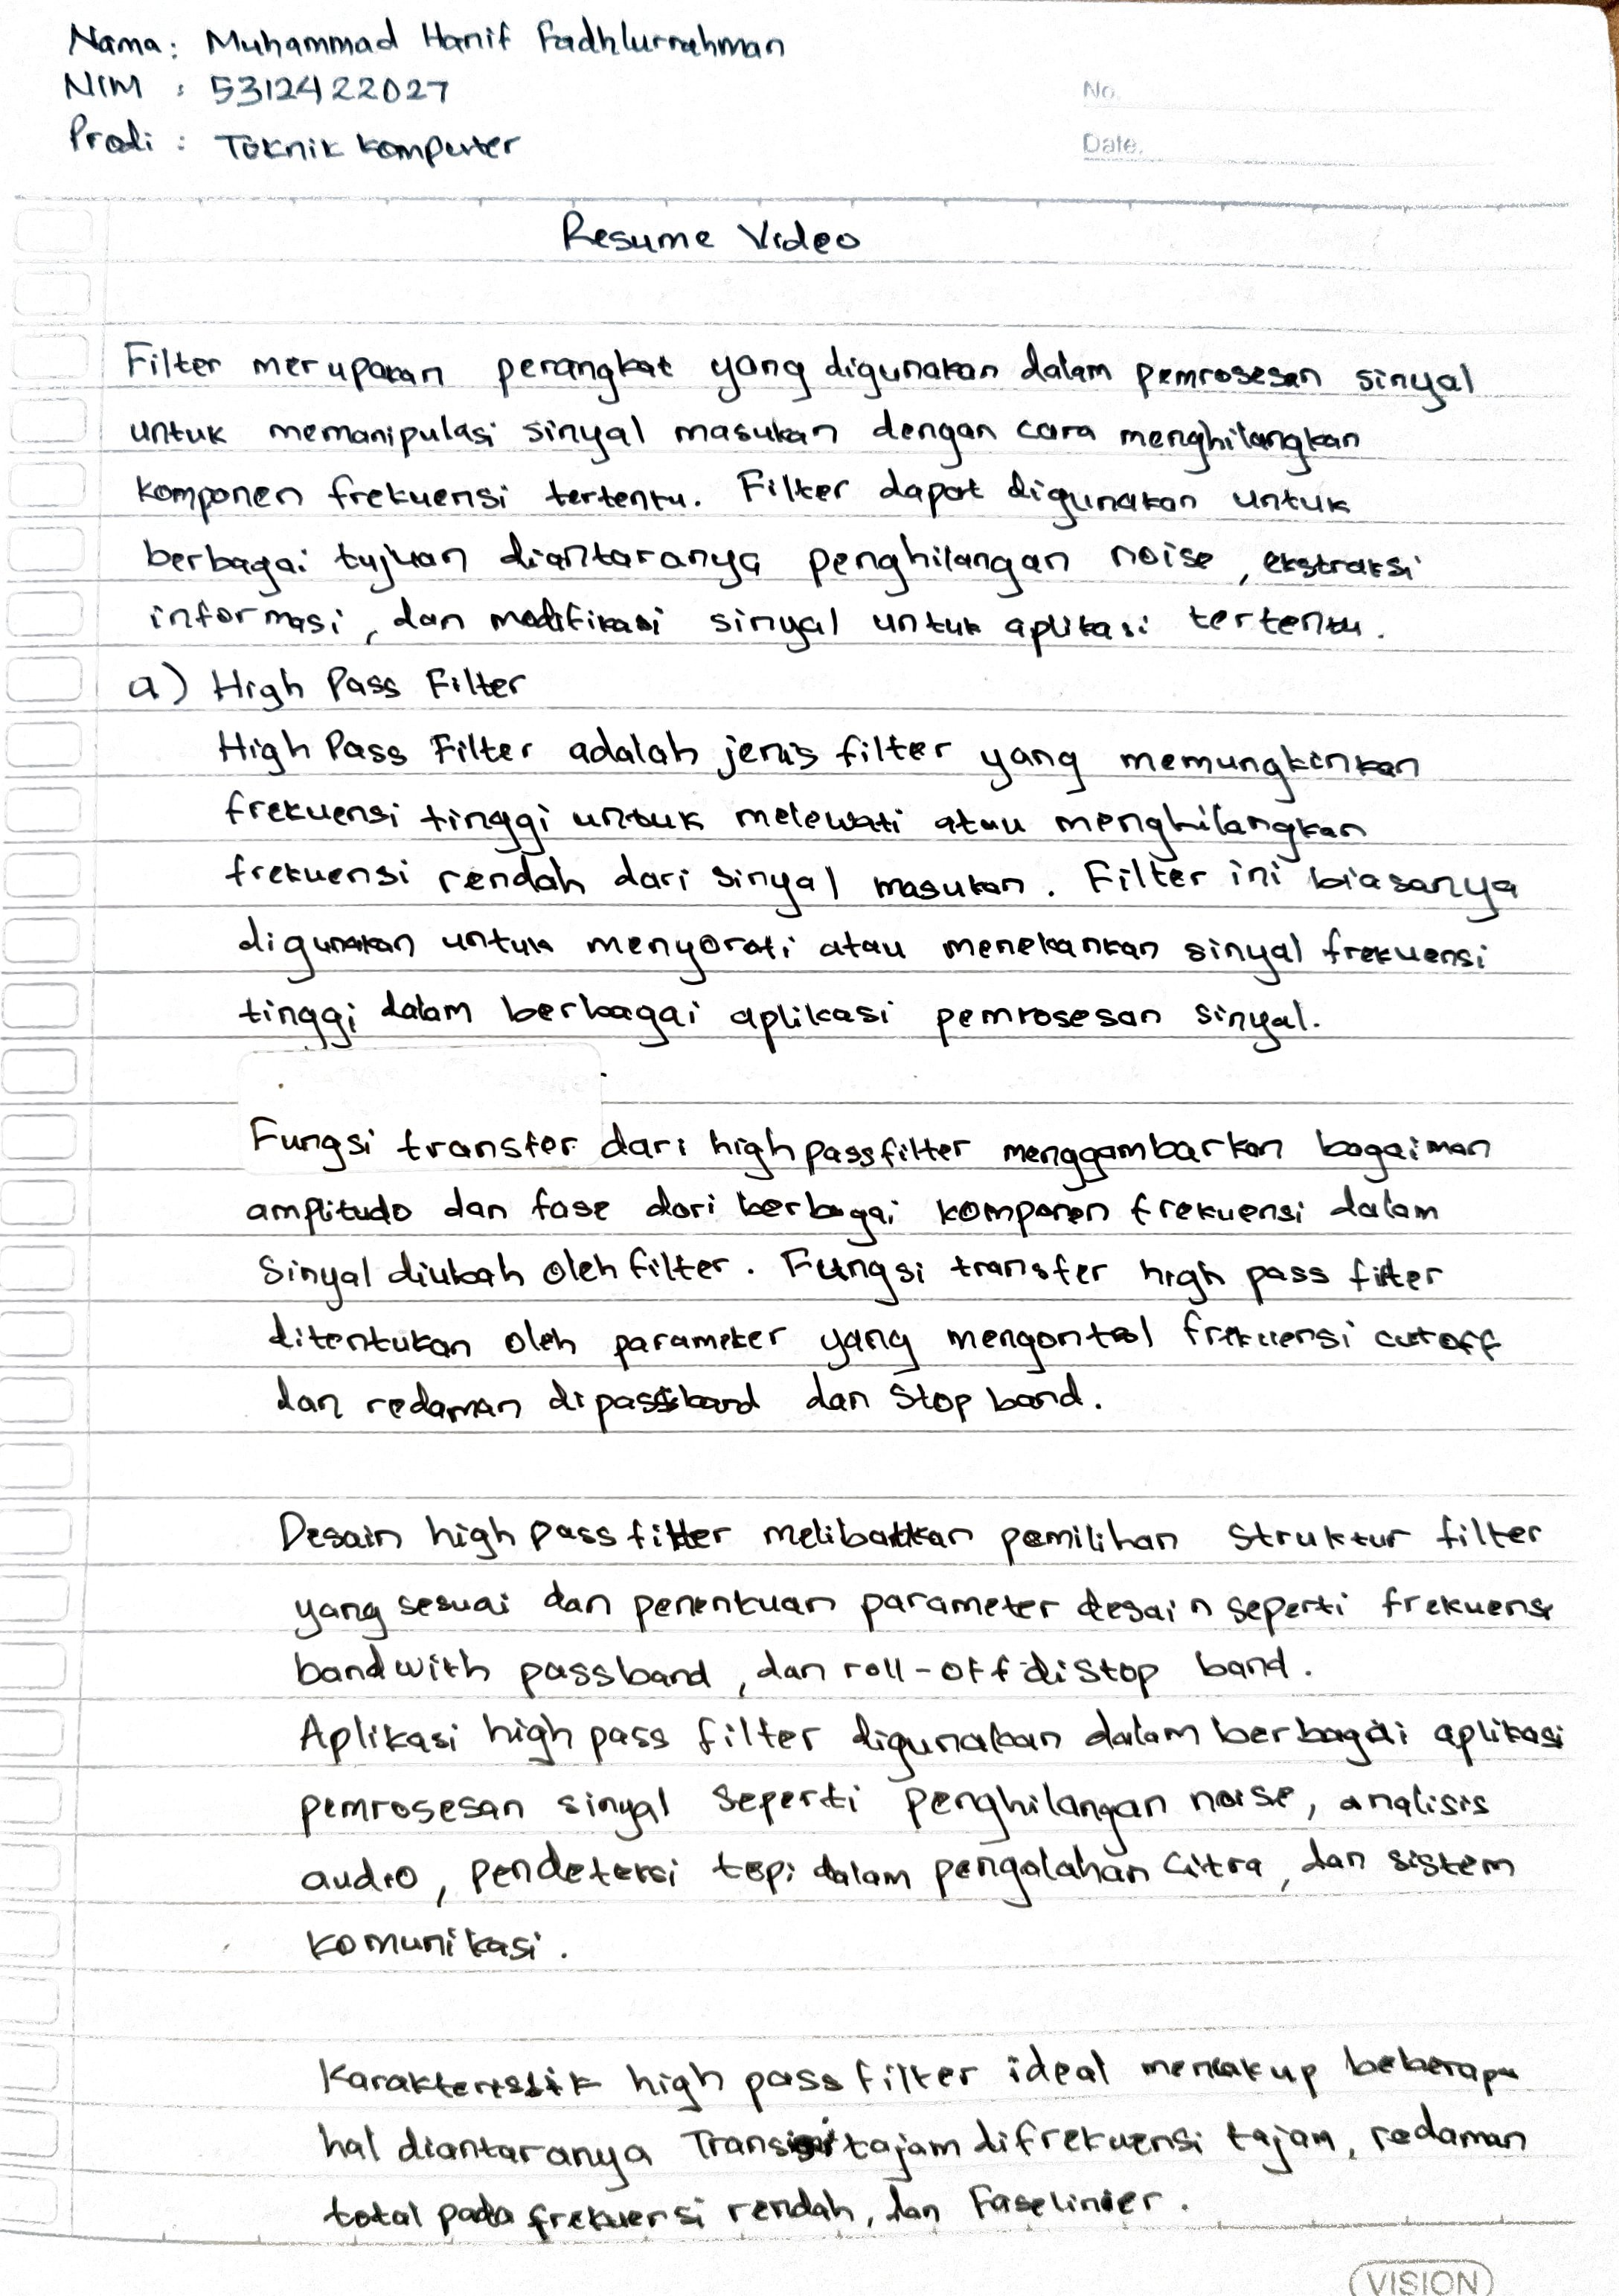 Nama : Muhammad Hanif Fadhlurrahman
NIM : 5312422027
Prodi : Teknik Komputer
No.
Date.
Resume Video
Filter merupakan perangkat yang digunakan dalam pemrosesan sinyal
untuk memanipulasi sinyal masukan dengan cara menghilangkan
komponen frekuensi tertentu. Filter dapat digunakan untuk
berbagai tujuan diantaranya penghilangan noise, ekstraksi
informasi, dan modifikasi sinyal untuk aplikasi tertentu.
a) High Pass Filter
High Pass Filter adalah jenis filter yang memungkinkan
frekuensi tinggi untuk melewati atau menghilangkan
frekuensi rendah dari sinyal masukan. Filter ini biasanya
digunakan untuk menyoroti atau menekankan sinyal frekuensi
tinggi dalam berbagai aplikasi pemrosesan sinyal.
Fungsi transfer dari high pass filter menggambarkan bagaiman
amplitudo dan fase dari berbagai komponen frekuensi dalam
Sinyal diubah oleh filter. Fungsi transfer high pass filter
ditentukan oleh parameter yang mengontrol frekuensi cutoff
dan redaman di passband dan Stop band.
Desain high pass filter melibatkan pemilihan struktur filter
yang sesuai dan penentuan parameter desain seperti frekuensi
bandwith passband, dan roll-off di stop band.
Aplikasi high pass filter digunakan dalam berbagai aplikasi
pemrosesan sinyal seperti penghilangan noise, analisis
audio, pendeteksi tepi dalam pengolahan Citra, dan sistem
komunikasi.
Karakteristik high pass filter ideal mencakup beberapa
hal diantaranya Transisi tajam di frekuensi tajam, redaman
total pada frekuensi rendah, dan Fase linier.
VISION